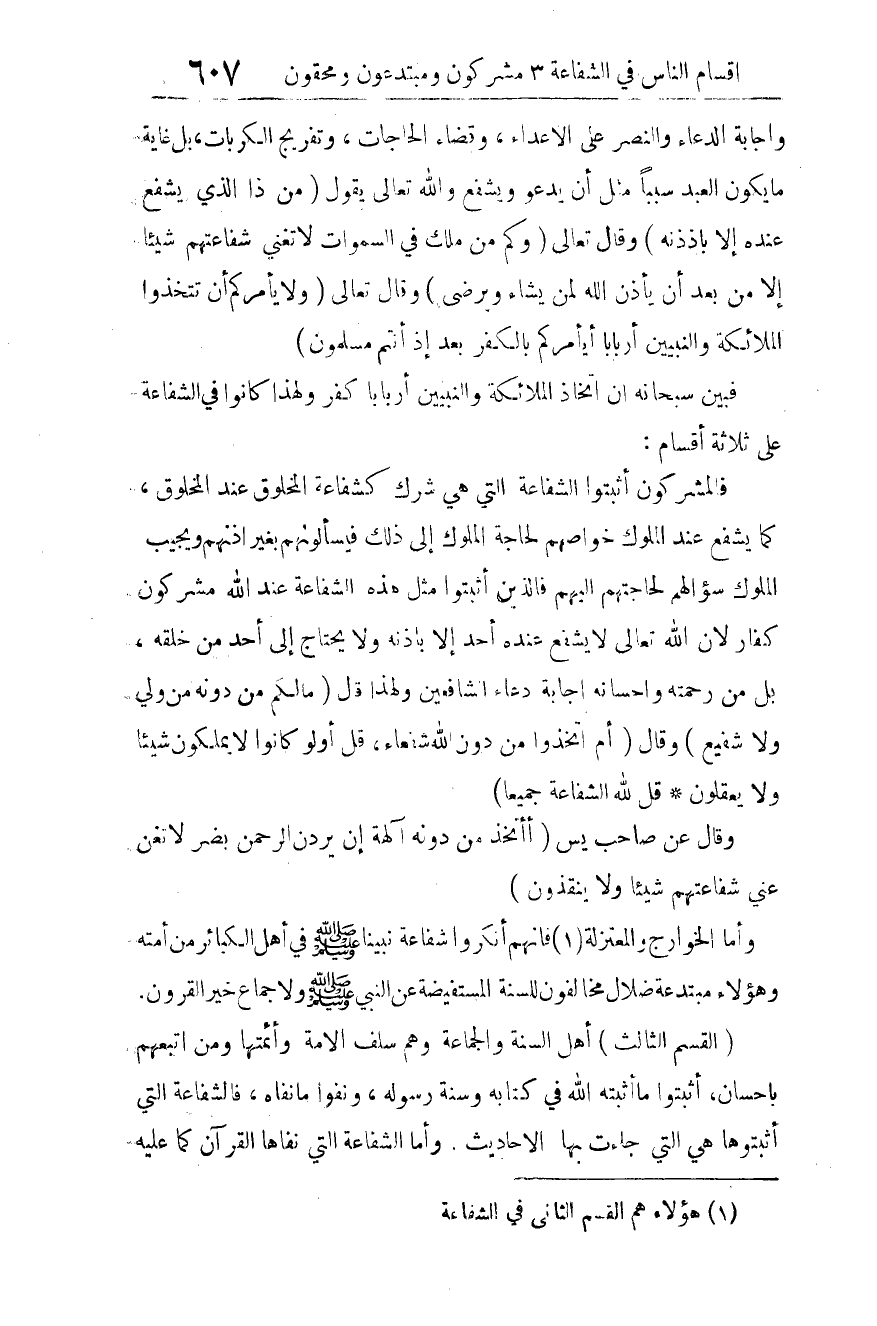 اقسام الناس في الشفاعة ٣ مشركون ومبتدعون ومحقون ٦٠٧
واجابة الدعاء والنصر على الاعداء ، وقضاء الحاجات ، وتفريج الكربات، بل غاية
مايكون العبد سبباً مثل أن يدعو ويشفع والله تعالى يقول ( من ذا الذي يشفع
عنده إلا باذنه ) وقال تعالى ( وكم من ملك في السموات لاتغني شفاعتهم شيئا
إلا من بعد أن يأذن الله لمن يشاء ويرضى ) وقال تعالى ( ولا يأمركم أن تتخذوا
الملائكة والنبيين أربابا أيأمركم بالكفر بعد إذ أنتم مسلمون )
فبين سبحانه ان اتخاذ الملائكة والنبيين أربابا كفر ولهذا كانوا في الشفاعة
على ثلاثة أقسام :
فالمشركون أثبتوا الشفاعة التي هي شرك كشفاعة المخلوق عند المخلوق ،
كما يشفع عند الملوك خواصهم لحاجة الملوك إلى ذلك فيسألونهم بغير اذنهم ويجيب
الملوك سؤالهم لحاجتهم اليهم فالذين أثبتوا مثل هذه الشفاعة عند الله مشركون
كفار لان الله تعالى لايشفع عنده أحد إلا باذنه ولا يحتاج إلى أحد من خلقه ،
بل من رحمته واحسانه اجابة دعاء الشافعين ولهذا قال ( مالكم من دونه من ولي
ولا شفيع ) وقال ( أم اتخذوا من دون الله شفعاء، قل أولو كانوا لايملكون شيئا
ولا يعقلون * قل لله الشفاعة جميعا)
وقال عن صاحب يس ( أأتخذ من دونه آلهة إن يردن الرحمن بضر لاتغن
عني شفاعتهم شيئا ولا ينقذون )
وأما الخوارج والمعتزلة (١) فانهم أنكروا شفاعة نبينا ﷺ في أهل الكبائر من أمته
وهؤلاء مبتدعة ضلال مخالفون للسنة المستفيضة عن النبي ﷺ ولاجماع خير القرون.
( القسم الثالث ) أهل السنة والجماعة وهم سلف الامة وأئمتها ومن اتبعهم
باحسان، أثبتوا ماأثبته الله في كتابه وسنة رسوله ، ونفوا مانفاه ، فالشفاعة التي
أثبتوها هي التي جاءت بها الاحاديث . وأما الشفاعة التي نفاها القرآن كما عليه
(١) هؤلاء هم القسم الثاني في الشفاعة